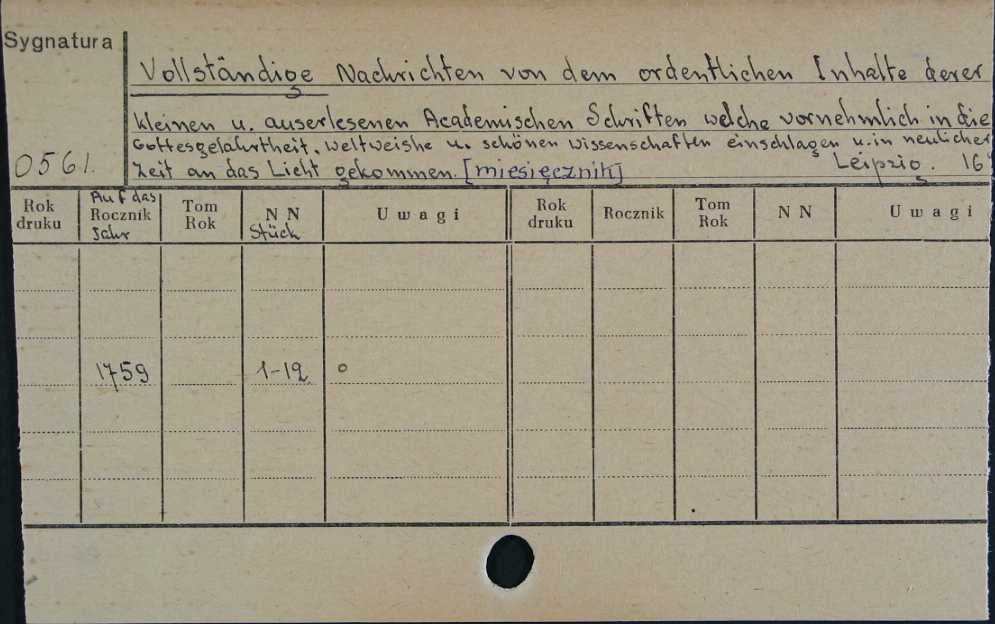 Sygnatura
Vollständige Nachrichten von dem ordentlichen Inhalte derer
kleinen u. auserlesenen Academischen Schriften welche vornehmlich in die
Gottesgelahrtheit, Weltweishe u. schönen Wissenschaften einschlagen u. in neulicher
0561. Zeit an das Licht gekommen. [miesięcznik] Leipzig. 16°
Rok druku Auf das Rocznik Jahr Tom Rok NN Stück Uwagi Rok druku Rocznik Tom Rok NN Uwagi
1759 1-12 o